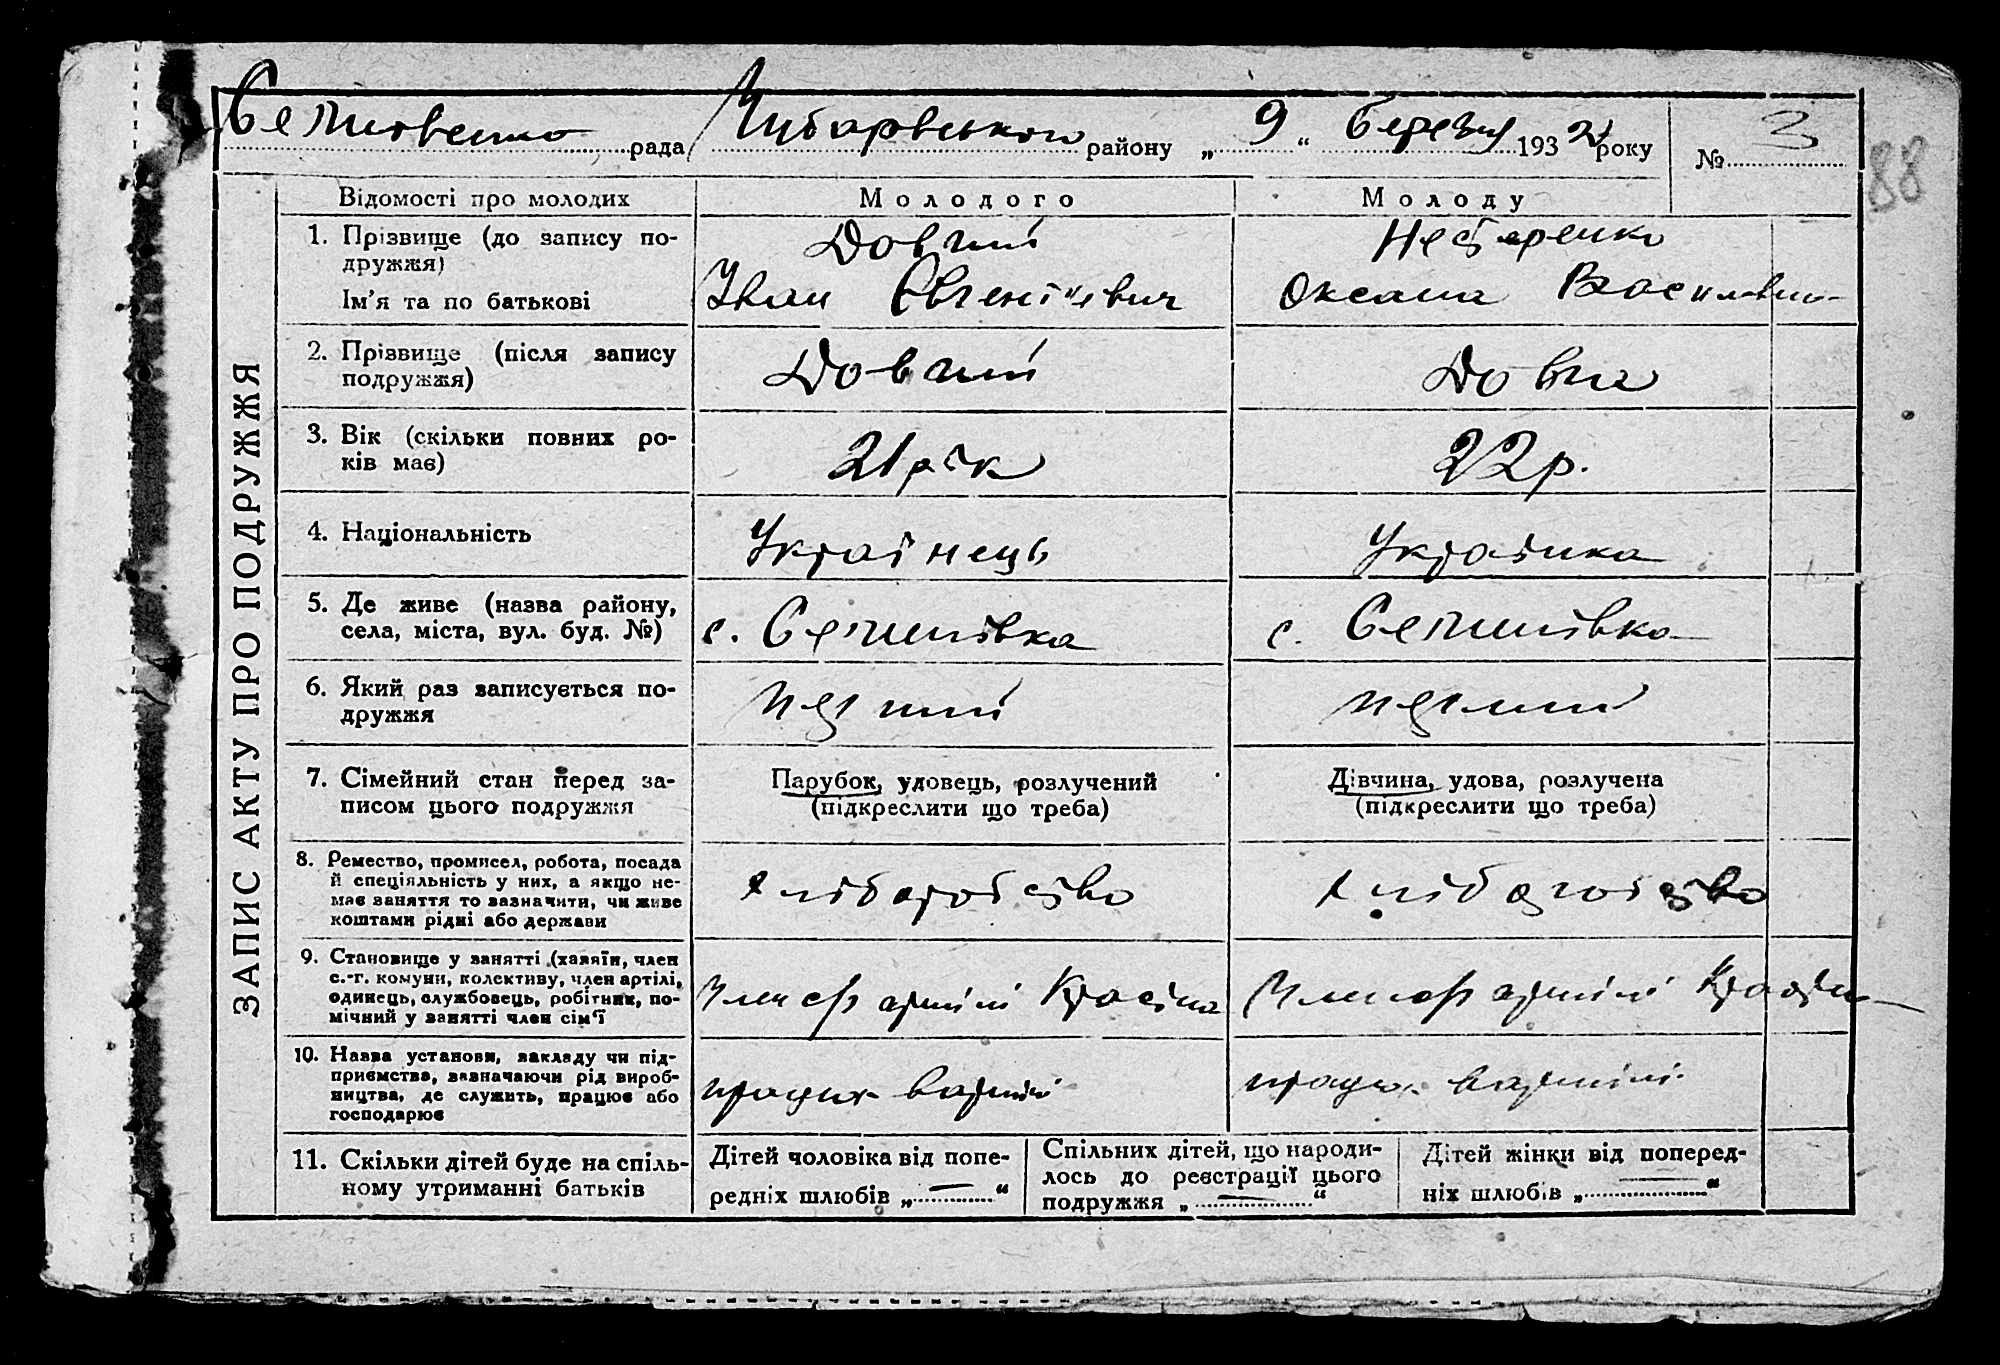 рада Чубарівського району „ 9 “ березня 1932 року № 3
88
ЗАПИС АКТУ ПРО ПОДРУЖЖЯ
Відомості про молодих Молодого Молоду
1. Прізвище (до запису по-
дружжя)
Довгий Нестеренко
Ім'я та по батькові Іван Євгенієвич Оксана Василівна
2. Прізвище (після запису
подружжя)
Довгий Довга
3. Вік (скільки повних ро-
ків має)
21 рік 22 р.
4. Національність Українець Українка
5. Де живе (назва району,
села, міста, вул. буд. №)
с. с.
6. Який раз записується по-
дружжя
перший перший
7. Сімейний стан перед за-
писом цього подружжя
Парубок, удовець, розлучений
(підкреслити що треба)
Дівчина, удова, розлучена
(підкреслити що треба)
8. Ремество, промисел, робота, посада
й спеціяльність у них, а якщо не-
має заняття то зазначити, чи живе
коштами рідні або держави
хліборобство хліборобство
9. Становище у занятті (хазяїн, член
с.-г. комуни, колективу, член артілі,
одинець, службовець, робітник, по-
мічний у занятті член сім'ї
Член с/г артілі Красіна Член с/г артілі
10. Назва установи, закладу чи під-
приємства, зазначаючи рід вироб-
ництва, де служить, працює або
господарює
працює в артілі працює в артілі
11. Скільки дітей буде на спіль-
ному утриманні батьків
Дітей чоловіка від попе-
редніх шлюбів „ — “
Спільних дітей, що народи-
лось до реєстрації цього
подружжя „ — “
Дітей жінки від поперед-
ніх шлюбів „ — “